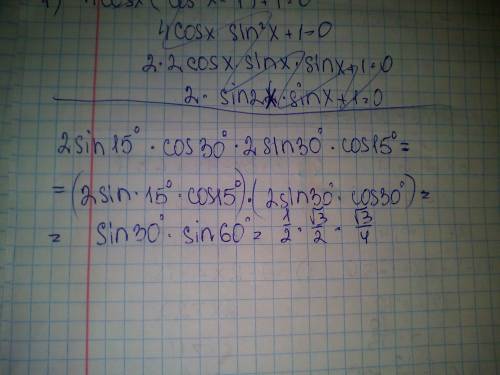 4cosx sin²x+1=0
2·2cosx sinx·sinx+1=0
2·sin2x·sinx+1=0
2sin15°·cos30°·2sin30°·cos15°=
=(2sin·15°·cos15°)·(2sin30°·cos30°)=
= sin30°·sin60°= 1/2·√3/2·√3/4